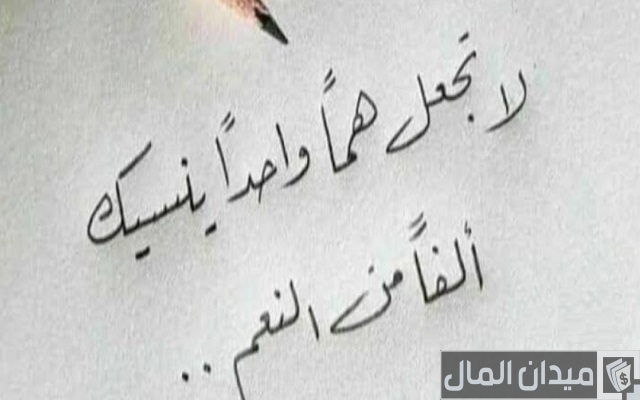 لا تجعل هماً واحداً ينسيك
ألفاً من النعم ..
ميدان المال